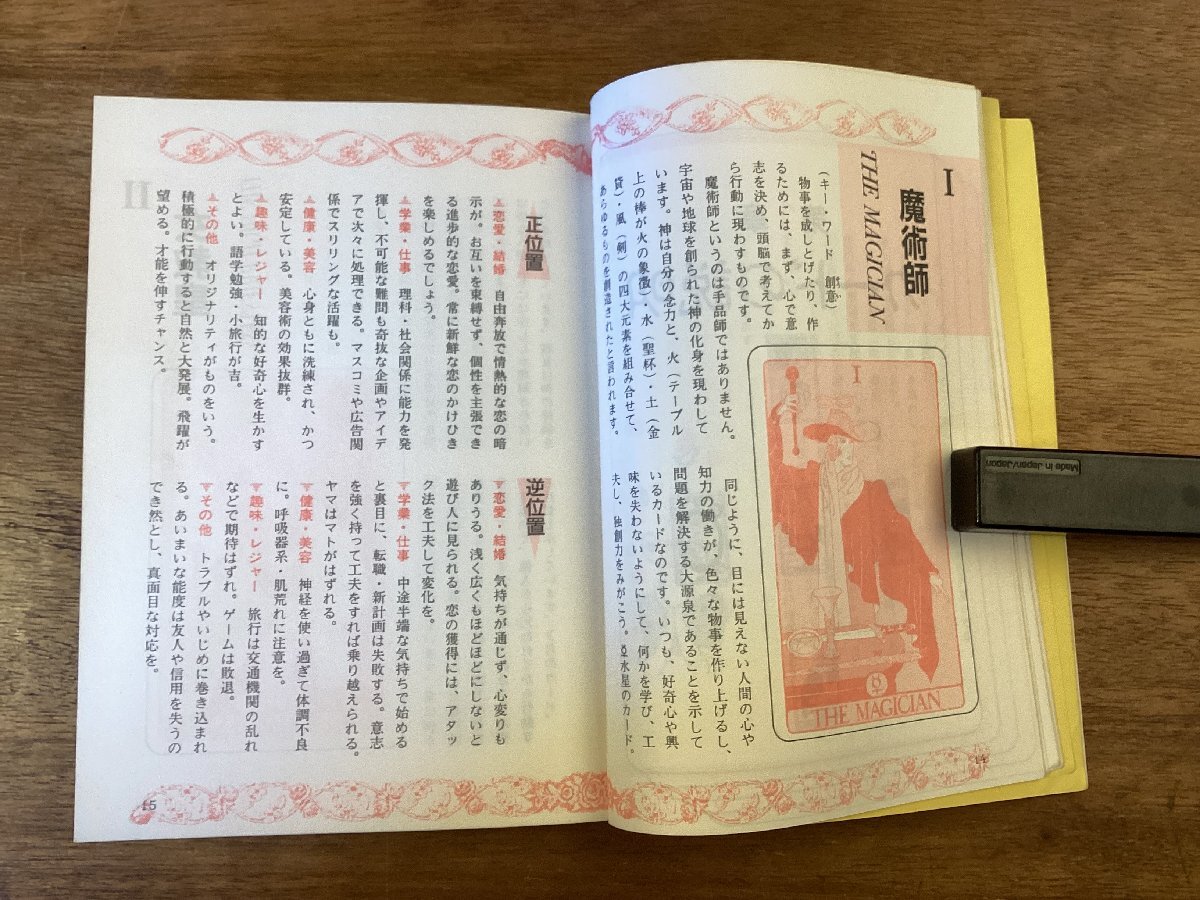 I
魔術師
THE MAGICIAN
(キー・ワード 創意)
物事を成しとげたり、作
るためには、まず、心で意
志を決め、頭脳で考えてか
ら行動に現わすものです。
魔術師というのは手品師ではありません。
宇宙や地球を創られた神の化身を現わして
います。神は自分の念力と、火(テーブル
上の棒が火の象徴)水(聖杯)・土(金
貨)・風(剣)の四大元素を組み合せて、
あらゆるものを創造されたと言われます。
I
THE MAGICIAN
同じように、目には見えない人間の心や
知力の働きが、色々な物事を作り上げるし、
問題を解決する大源泉であることを示して
いるカードなのです。いつも、好奇心や興
味を失わないようにして、何かを学び、工
夫し、独創力をみがこう。☿水星のカード。
14
正位置
恋愛・結婚 自由奔放で情熱的な恋の暗
示が。お互いを束縛せず、個性を主張でき
る進歩的な恋愛。常に新鮮な恋のかけひき
を楽しめるでしょう。
学業・仕事 理科・社会関係に能力を発
揮し、不可能な難問も奇抜な企画やアイデ
アで次々に処理できる。マスコミや広告関
係でスリリングな活躍も。
健康・美容 心身ともに洗練され、かつ
安定している。美容術の効果抜群。
趣味・レジャー 知的な好奇心を生かす
とよい。語学勉強・小旅行が吉。
その他 オリジナリティがものをいう。
積極的に行動すると自然と大発展。飛躍が
望める。才能を伸すチャンス。
逆位置
恋愛・結婚 気持ちが通じず、心変りも
ありうる。浅く広くもほどほどにしないと
遊び人に見られる。恋の獲得には、アタッ
ク法を工夫して変化を。
学業・仕事 中途半端な気持ちで始める
と裏目に、転職・新計画は失敗する。意志
を強く持って工夫をすれば乗り越えられる。
ヤマはマトがはずれる。
健康・美容 神経を使い過ぎて体調不良
に。呼吸器系・肌荒れに注意を。
趣味・レジャー 旅行は交通機関の乱れ
などで期待はずれ。ゲームは敗退。
その他 トラブルやいじめに巻き込まれ
る。あいまいな態度は友人や信用を失うの
でき然とし、真面目な対応を。
15
Made in Japan/Japon